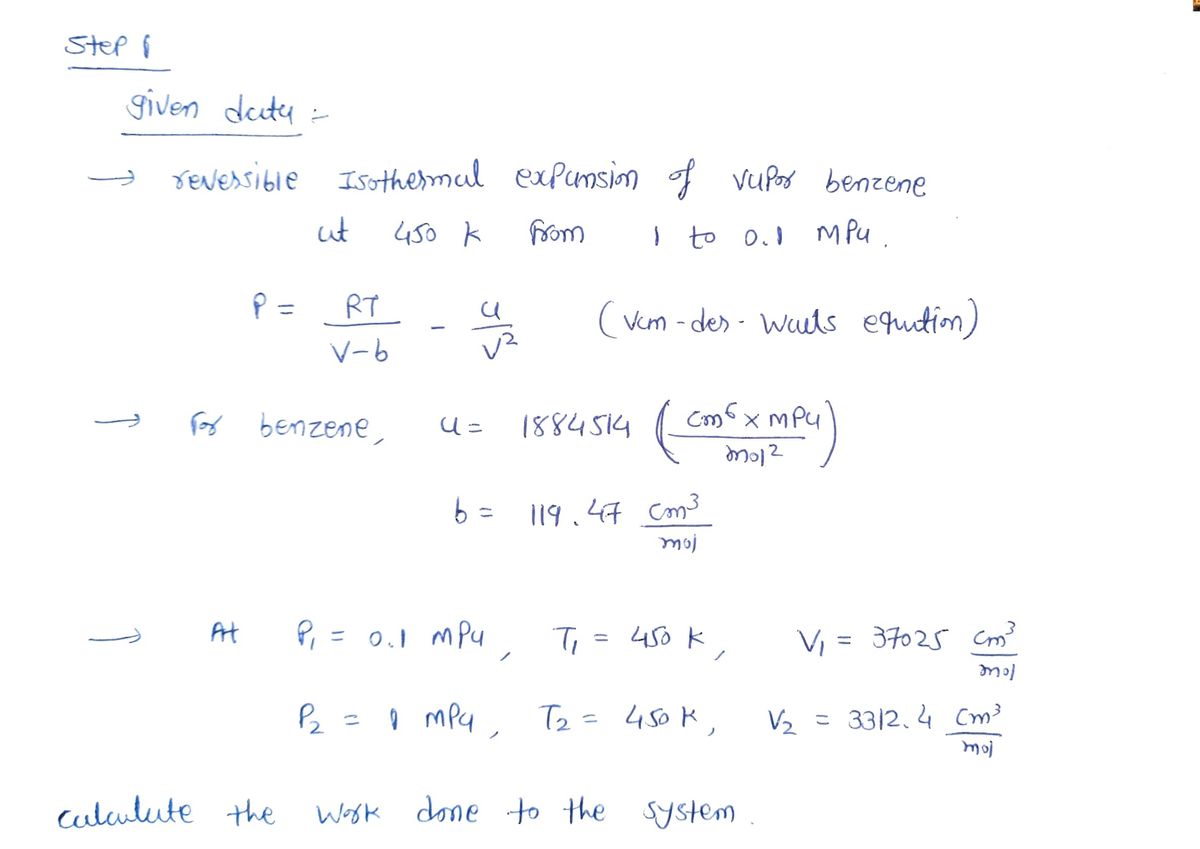 Step 1
given data :-
→ reversible Isothermal expansion of vapor benzene
at 450 K from 1 to 0.1 MPa.
P = RT / V-b - a / V² (Van-der-Waals equation)
→ for benzene, a = 1884514 (cm⁶ × MPa / mol²)
b = 119.47 cm³ / mol
→ At P₁ = 0.1 MPa, T₁ = 450 K, V₁ = 37025 cm³ / mol
P₂ = 1 MPa, T₂ = 450 K, V₂ = 3312.4 cm³ / mol
calculate the work done to the system.